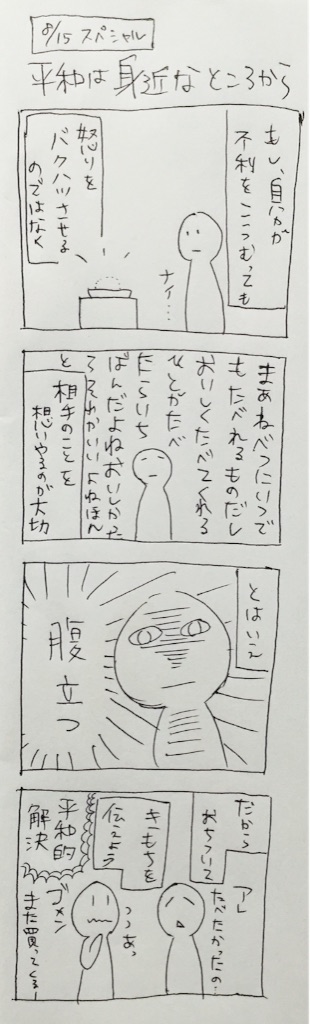 8/15 スペシャル
平和は身近なところから
もし、自分が
不利をこうむっても
ナイ…
怒りを
バクハツさせる
のではなく
まあねべつにいつで
もたべれるものだし
おいしくたべてくれる
ひとがたべ
たらいち
ばんだよねおいしかった
らそれがいいよねほん
と
相手のことを
想いやるのが大切
とはいえ
腹立つ
だから
おちついて
アレ
たべたかったの…
きもちを
伝えよう
平和的
解決
ゴメン
また買ってくるー